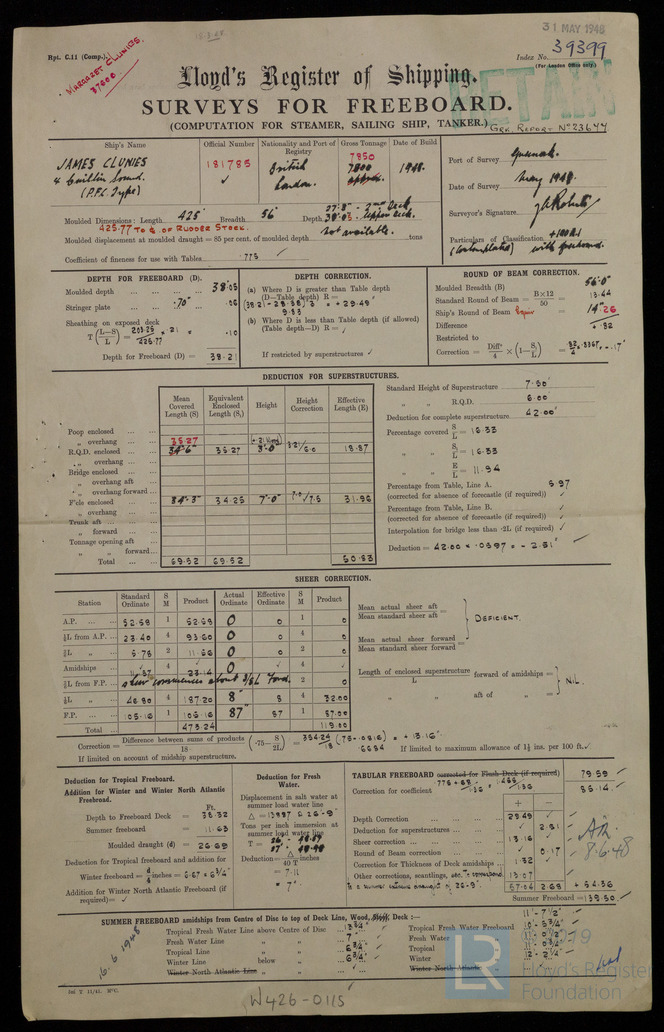 31 MAY 1948
Rpt. C.11 (Comp.).
MARGARET CLUNIES
37600
Index No. 39399
(For London Office only.)
Lloyd's Register of Shipping.
RETAIN
SURVEYS FOR FREEBOARD.
(COMPUTATION FOR STEAMER, SAILING SHIP, TANKER.)
GRK. REPORT No 23644
Ship's Name
Official Number
Nationality and Port of Registry
Gross Tonnage
Date of Build
JAMES CLUNIES
181785
British
London
7850
7800
approx.
1948.
(P.F.C. Type)
Port of Survey Greenock.
Date of Survey May 1948.
Surveyor's Signature
Particulars of Classification +100A1
(Contemplated) with freeboard.
Moulded Dimensions: Length 425' Breadth 56' Depth
425.77 TO ℄ OF RUDDER STOCK.
Moulded displacement at moulded draught = 85 per cent. of moulded depth not available. tons
Coefficient of fineness for use with Tables .775
DEPTH FOR FREEBOARD (D).
Moulded depth 38.05
Stringer plate .70" .06
Sheathing on exposed deck
T (L–S / L) = .10
Depth for Freeboard (D) = 38.21
DEPTH CORRECTION.
(a) Where D is greater than Table depth
(D—Table depth) R =
(38.21 - 28.38) 3 = + 29.49
9.83
(b) Where D is less than Table depth (if allowed)
(Table depth—D) R =
If restricted by superstructures
ROUND OF BEAM CORRECTION.
Moulded Breadth (B) 56.0'
Standard Round of Beam = B×12 / 50 = 13.44
Ship's Round of Beam
Difference
Restricted to
Correction = Diffce / 4 × (1 – S1 / L) =
DEDUCTION FOR SUPERSTRUCTURES.
Mean Covered Length (S)
Equivalent Enclosed Length (S1)
Height
Height Correction
Effective Length (E)
Poop enclosed
„ overhang 35.27
R.Q.D. enclosed 34'6" 35.27 3'.0" 18.87
„ overhang
Bridge enclosed
„ overhang aft
„ overhang forward
F'cle enclosed 34'.3" 34.25 7'.0" 7.0/7.5 31.96
„ overhang
Trunk aft
„ forward
Tonnage opening aft
„ „ forward
Total 69.52 69.52 50.83
Standard Height of Superstructure 7.50'
„ „ R.Q.D. 6.00'
Deduction for complete superstructure 42.00"
Percentage covered S / L = 16.33
„ „ S1 / L = 16.33
„ „ E / L = 11.94
Percentage from Table, Line A. 5.97
(corrected for absence of forecastle (if required))
Percentage from Table, Line B.
(corrected for absence of forecastle (if required))
Interpolation for bridge less than ·2L (if required)
Deduction = 42.00 × .0597 = - 2.51"
SHEER CORRECTION.
Station
Standard Ordinate
S M
Product
Actual Ordinate
Effective Ordinate
S M
Product
A.P. 52.58 1 52.58 0 0 1 0
⅙L from A.P. 23.40 4 93.60 0 0 4 0
⅓L „ 5.78 2 11.56 0 0 2 0
Amidships 0 4
⅓L from F.P. 11.57 2 23.14
⅙L „ 46.80 4 187.20 8" 8 4 32.00
F.P. 105.16 1 105.16 87" 87 1 87.00
Total 473.24 119.00
Mean actual sheer aft
Mean standard sheer aft =
Mean actual sheer forward
Mean standard sheer forward =
DEFICIENT.
Length of enclosed superstructure / L forward of amidships =
„ „ aft of „ =
NIL.
Correction = Difference between sums of products / 18 (·75– S / 2L) = 354.24 / 18 (.75-.0816) = + 13.16"
.6684
If limited on account of midship superstructure.
If limited to maximum allowance of 1½ ins. per 100 ft.
Deduction for Tropical Freeboard.
Addition for Winter and Winter North Atlantic Freeboard.
Ft.
Depth to Freeboard Deck = 38.32
Summer freeboard = 11.63
Moulded draught (d) = 26.69
Deduction for Tropical freeboard and addition for
Winter freeboard = d / 4 inches = 6.67 = 6¾"
Addition for Winter North Atlantic Freeboard (if required) =
Deduction for Fresh Water.
Displacement in salt water at summer load water line
Δ = 13887 @ 26'-9"
Tons per inch immersion at summer load water line
T =
Deduction = Δ / 40 T inches
= 7.11
= 7"
TABULAR FREEBOARD corrected for Flush Deck (if required) 79.59
Correction for coefficient 85.14
+ –
Depth Correction 29.49
Deduction for superstructures 2.51
Sheer correction 13.16
Round of Beam correction 0.17
Correction for Thickness of Deck amidships 1.32
Other corrections, scantlings, etc. 13.07
57.04 2.68 + 54.36
Summer Freeboard = 139.50
8.6.48
SUMMER FREEBOARD amidships from Centre of Disc to top of Deck Line, Wood, Steel, Deck :—
11'- 7½"
Tropical Fresh Water Line above Centre of Disc 13¾"
Fresh Water Line „ „ 7"
Tropical Line „ „ 6¾"
Winter Line below „ 6¾"
Winter North Atlantic Line „ „
Tropical Fresh Water Freeboard 10'- 5¾"
Fresh Water „ 11'- 0½"
Tropical „ 11'- 0¾"
Winter „ 12'- 2¼"
Winter North Atlantic „
16.6.1948
W426-0115
LR
Lloyd's Register
Foundation